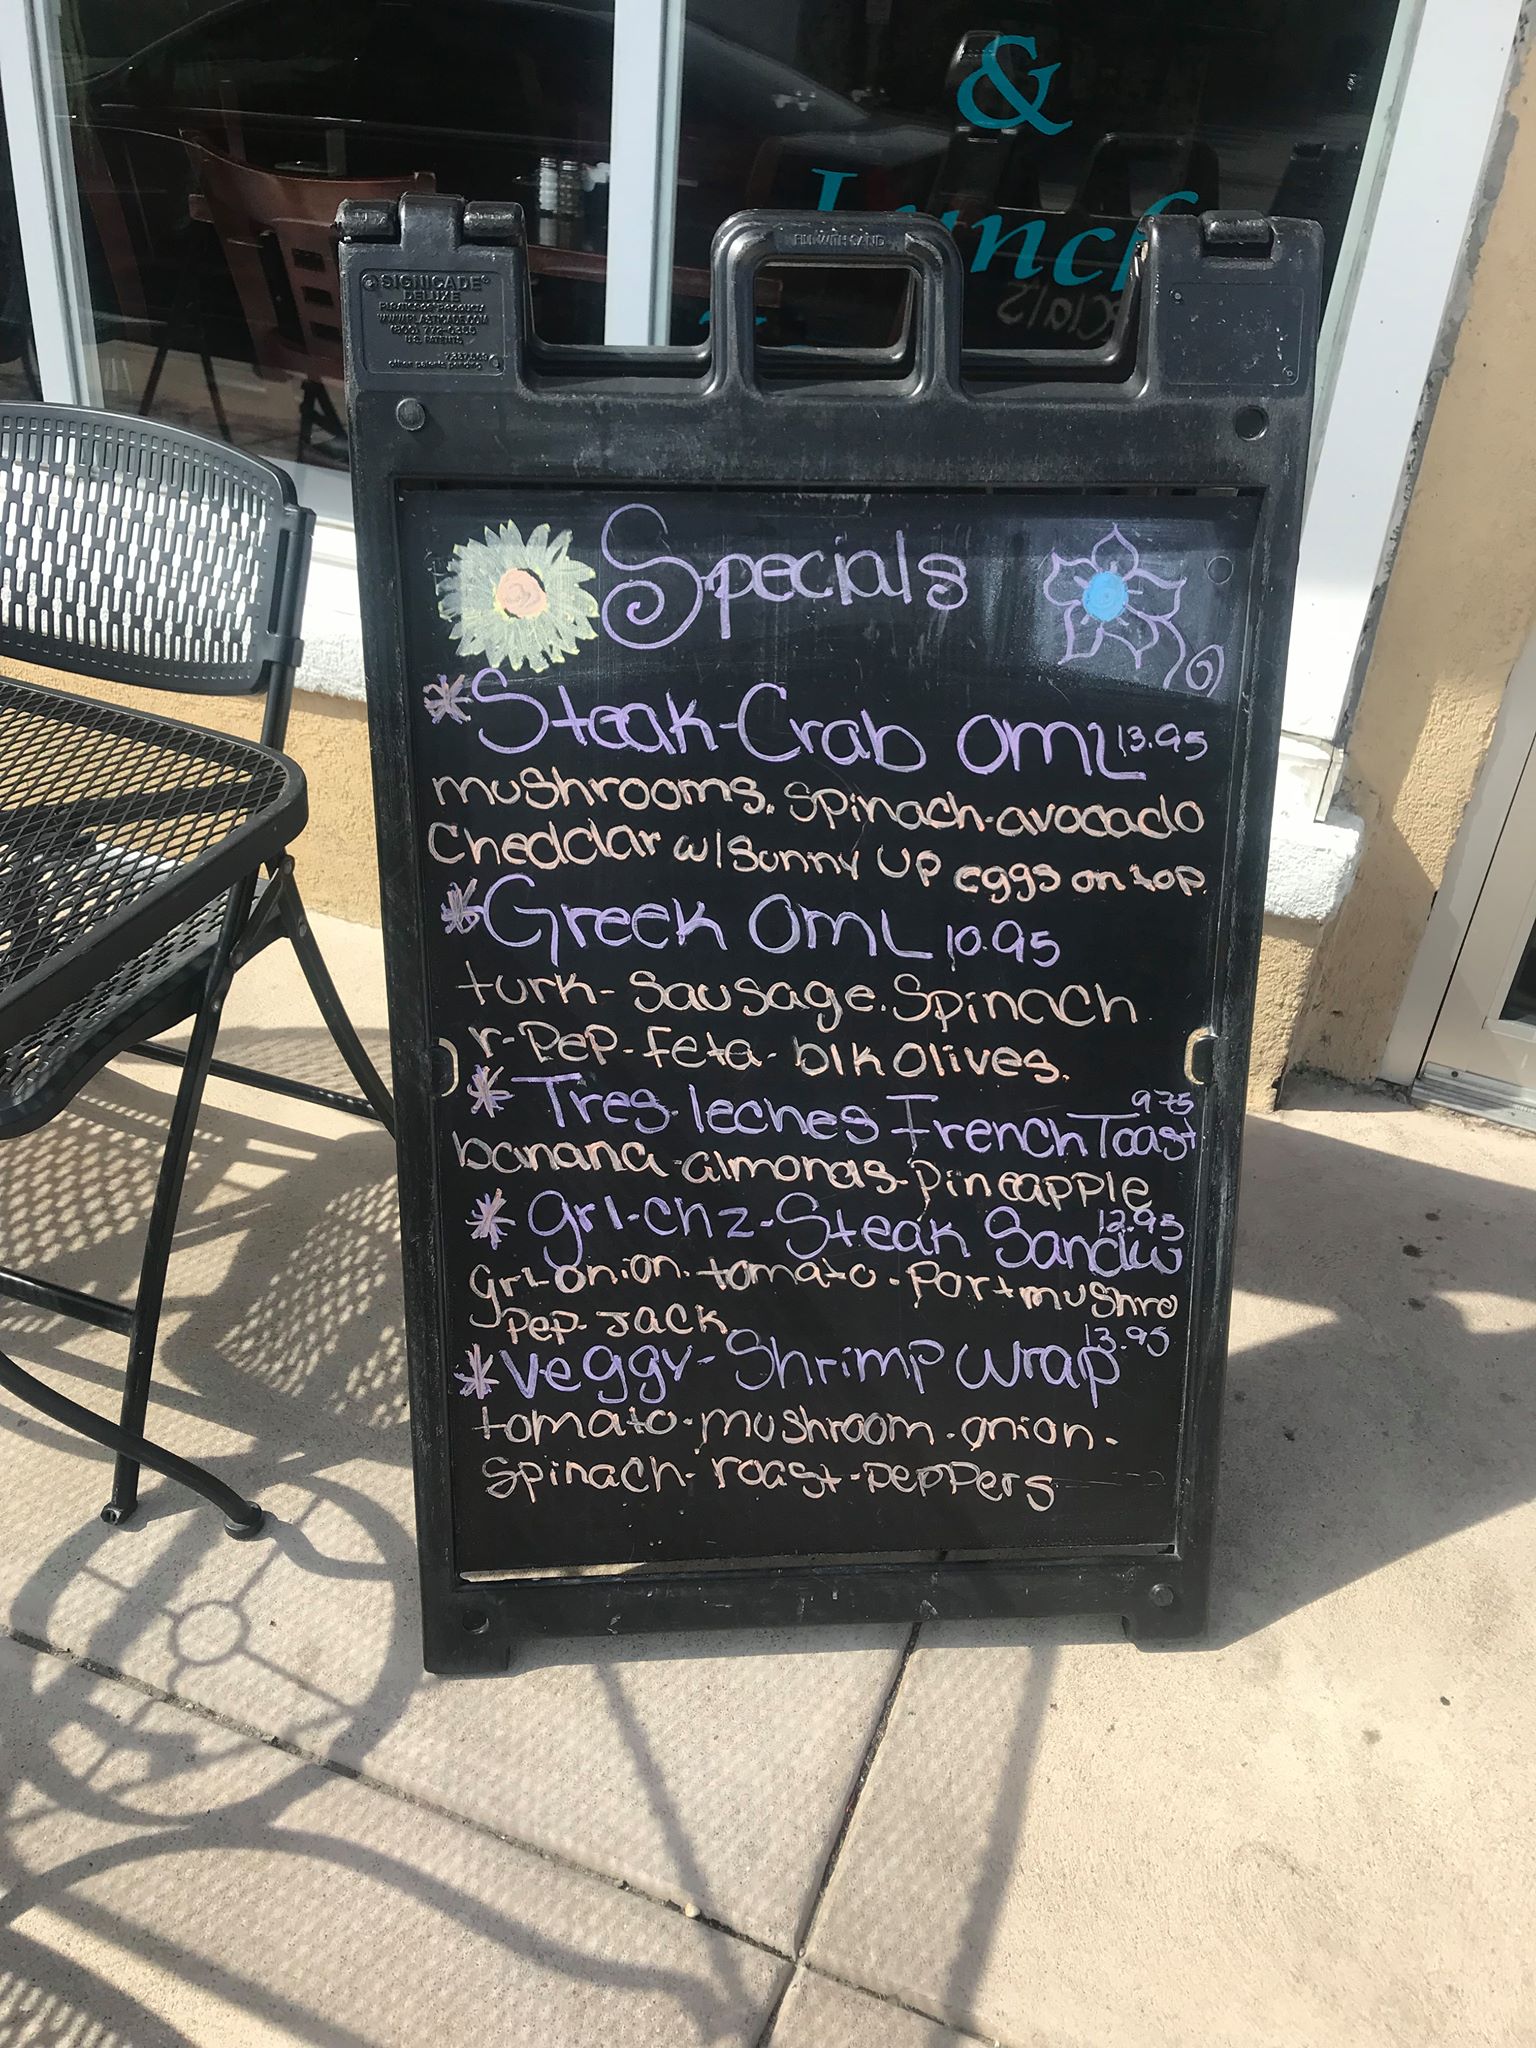 &
Lunch
FILL WITH SAND
SIGNICADE®
DELUXE
PLASTICADE PRODUCT
WWW.PLASTICADE.COM
(800) 772-0355
U.S. PATENTS
other patents pending
Specials
*Steak-Crab OML 13.95
mushrooms. spinach-avocado
Cheddar w/sunny up eggs on top.
*Greek OML 10.95
turk-sausage. Spinach
r-Pep-feta-blk olives.
*Tres leches French Toast 9.75
banana-almonds-pineapple
*grl-chz-Steak Sandw 12.95
grl-onion. tomato-Port mushro
Pep-Jack
*Veggy-Shrimp wrap 13.95
tomato-mushroom-onion-
spinach-roast-peppers